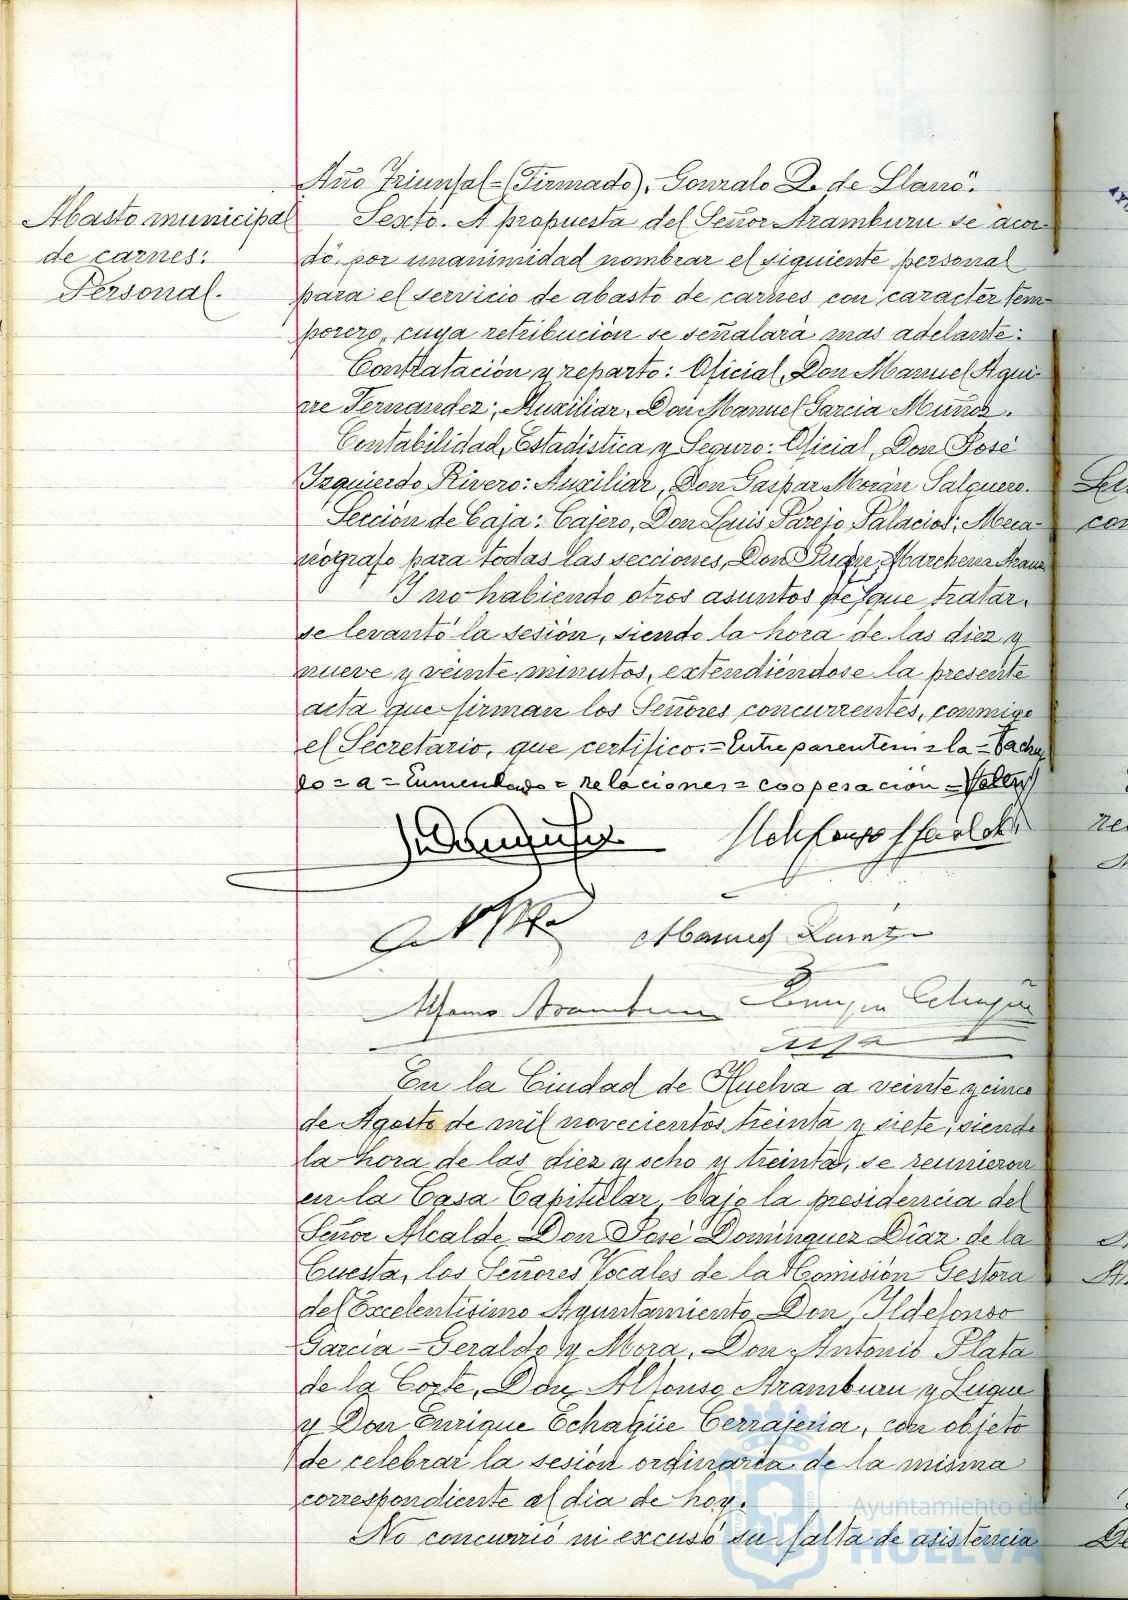 Año Triunfal=(Firmado), Gonzalo Q. de Llano".
Abasto municipal
de carnes:
Personal.
Sexto. A propuesta del Señor Aramburu se acor-
dó por unanimidad nombrar el siguiente personal
para el servicio de abasto de carnes con caracter tem-
porero, cuya retribución se señalará mas adelante:
Contratación y reparto: Oficial, Don Manuel Agui-
rre Fernandez; Auxiliar, Don Manuel Garcia Muñoz.
Contabilidad, Estadistica y Seguro: Oficial, Don José
Izquierdo Rivero: Auxiliar, Don Gaspar Morán Salguero.
Sección de Caja: Cajero, Don Luis Parejo Palacios; Meca-
nógrafo para todas las secciones, Don Juan Marchena
Y no habiendo otros asuntos de que tratar,
se levantó la sesión, siendo la hora de las diez y
nueve y veinte minutos, extendiéndose la presente
acta que firman los Señores concurrentes, conmigo
el Secretario, que certifico.=Entre parentesis=la=Tacha
do=a=Enmendado=relaciones=cooperación=Valen
Manuel
Alfonso Aramburu Enrique Echagüe
En la Ciudad de Huelva a veinte y cinco
de Agosto de mil novecientos treinta y siete, siendo
la hora de las diez y ocho y treinta, se reunieron
en la Casa Capitular, bajo la presidencia del
Señor Alcalde Don José Dominguez Díaz de la
Cuesta, los Señores Vocales de la Comisión Gestora
del Excelentísimo Ayuntamiento Don Ildefonso
García-Geraldo y Mora, Don Antonio Plata
de la Corte, Don Alfonso Aramburu y Luque
y Don Enrique Echagüe Cerrajeria, con objeto
de celebrar la sesión ordinaria de la misma
correspondiente al dia de hoy.
No concurrió ni excusó su falta de asistencia
Ayuntamiento de
HUELVA